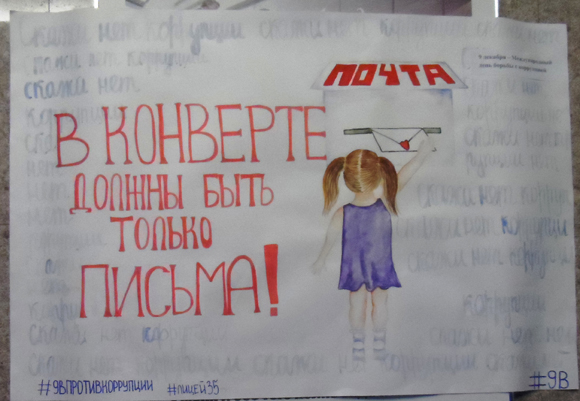 скажи нет коррупции скажи нет коррупции скажи нет
скажи нет коррупции
скажи нет
9 декабря - Международный
день борьбы с коррупцией
ПОЧТА
В КОНВЕРТЕ
ДОЛЖНЫ БЫТЬ
ТОЛЬКО
ПИСЬМА!
коррупции
скажи нет корруп
скажи нет коррупции
скажи нет коррупции
коррупции
скажи нет коррупции
скажи нет коррупции скажи нет коррупции скажи
#9ВПРОТИВКОРРУПЦИИ
#ЛИЦЕЙ35
#9В